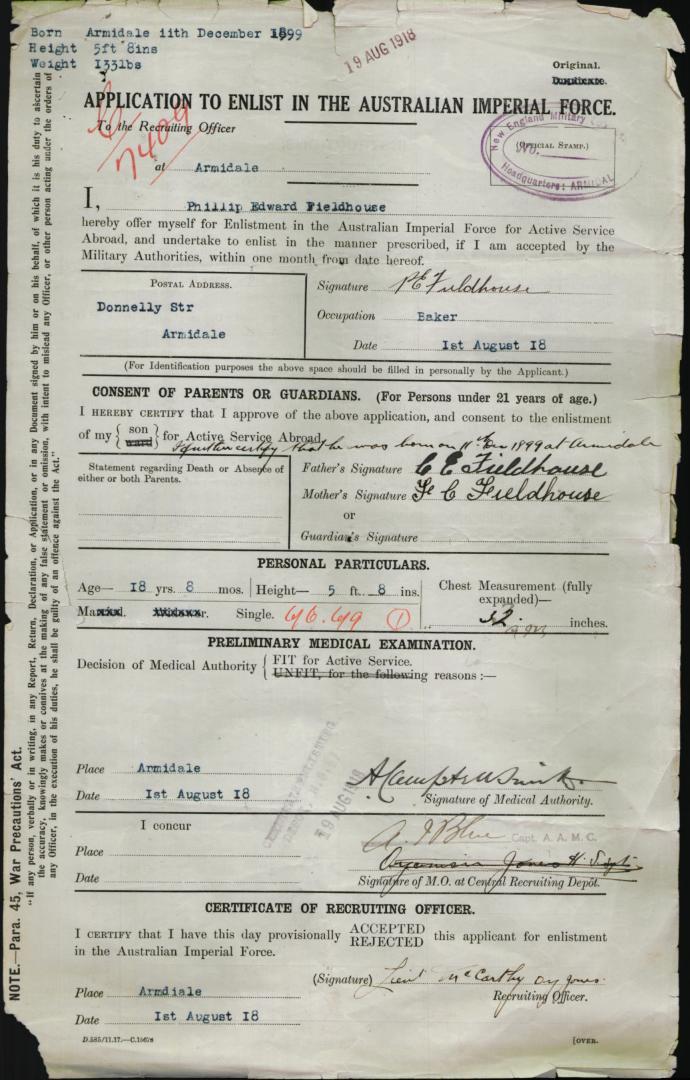 Born Armidale 11th December 1899
Height 5ft 8ins
Weight 133lbs
19 AUG 1918
Original.
Duplicate.
APPLICATION TO ENLIST IN THE AUSTRALIAN IMPERIAL FORCE.
To the Recruiting Officer
7409
at Armidale
New England Military
No.
Headquarters: ARMIDAL
(OFFICIAL STAMP.)
I, Phillip Edward Fieldhouse
hereby offer myself for Enlistment in the Australian Imperial Force for Active Service
Abroad, and undertake to enlist in the manner prescribed, if I am accepted by the
Military Authorities, within one month from date hereof.
POSTAL ADDRESS.
Donnelly Str
Armidale
Signature P E Fieldhouse
Occupation Baker
Date 1st August 18
(For Identification purposes the above space should be filled in personally by the Applicant.)
CONSENT OF PARENTS OR GUARDIANS. (For Persons under 21 years of age.)
I HEREBY CERTIFY that I approve of the above application, and consent to the enlistment
of my { son ward } for Active Service Abroad
I further certify that he was born on 11th Dec 1899 at Armidale
Statement regarding Death or Absence of
either or both Parents.
Father's Signature C E Fieldhouse
Mother's Signature F C Fieldhouse
or
Guardian's Signature
PERSONAL PARTICULARS.
Age— 18 yrs. 8 mos. Height— 5 ft. 8 ins.
Chest Measurement (fully
expanded)—
32 inches.
Single.
PRELIMINARY MEDICAL EXAMINATION.
Decision of Medical Authority { FIT for Active Service.
UNFIT, for the following reasons :—
Place Armidale
Date 1st August 18
Signature of Medical Authority.
19 AUG 1918
I concur
Place
Date
Capt. A. A. M. C.
Signature of M.O. at Central Recruiting Depôt.
CERTIFICATE OF RECRUITING OFFICER.
I CERTIFY that I have this day provisionally ACCEPTED REJECTED this applicant for enlistment
in the Australian Imperial Force.
(Signature) Lieut McCarthy
Recruiting Officer.
Place Armdiale
Date 1st August 18
D.585/11.17.—C.15678
[OVER.
NOTE.—Para. 45, War Precautions' Act.
"If any person, verbally or in writing, in any Report, Return, Declaration, or Application, or in any Document signed by him or on his behalf, of which it is his duty to ascertain
the accuracy, knowingly makes or connives at the making of any false statement or omission, with intent to mislead any Officer, or other person acting under the orders of
any Officer, in the execution of his duties, he shall be guilty of an offence against the Act."